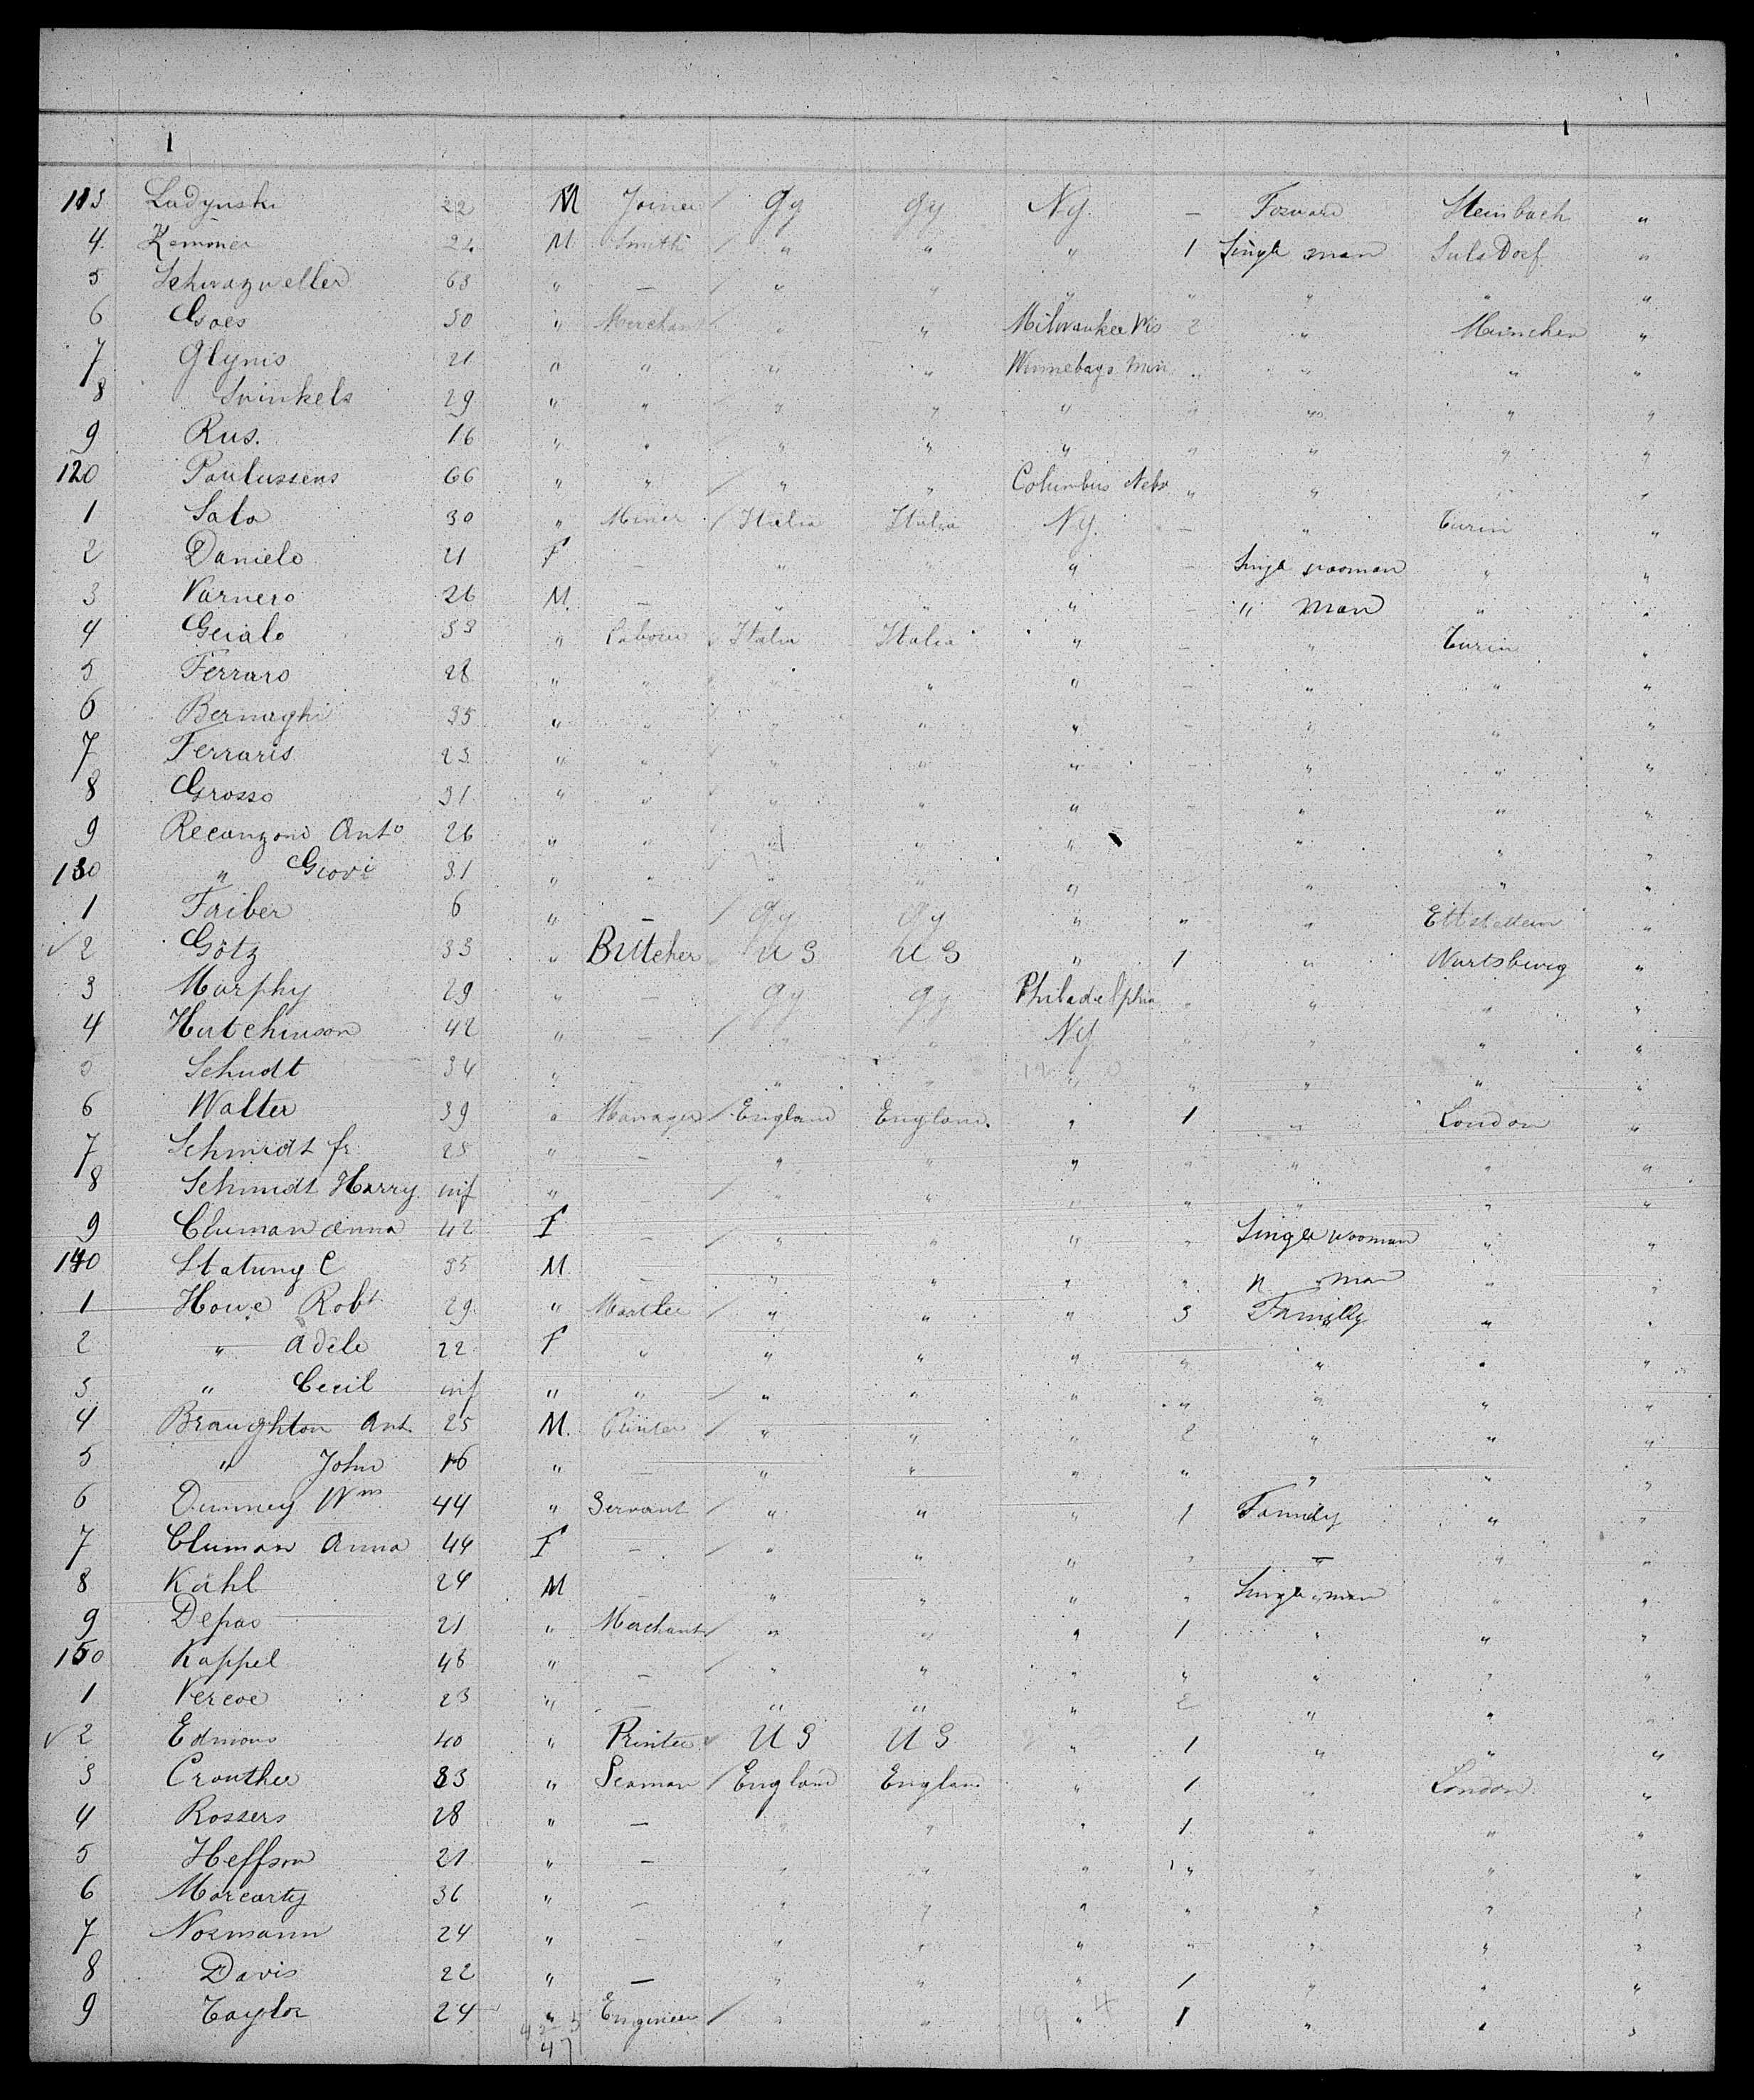 1 1
113 Ladynski 22 M Joiner / Gy Gy Ny. — Forward Steinbach "
4. Kemmner 21. M Smith / " " " 1 Single man Sulz Dorf "
5 Schwazweller 63 " — / " " " " " " "
6 Goes 30 " Merchant / " " Milwaukee Wis 2 " München "
7 Glynis 21 " " " " Winnebago Min " " " "
8 Svinkels 29 " " / " " " " " " "
9 Rus. 16 " " / " " " " " " "
120 Paulussens 66 " " / " " Columbus Nebr " " " "
1 Sala 30 " Miner / Italia Italia Ny. — " Turin "
2 Daniele 21 F — " " " — Single wooman " "
3 Varnero 26 M. — " " " — " Man " "
4 Geialo 33 " Labour / Italia Italia " — " Turin "
5 Ferraro 28 " " " " " — " " "
6 Bernaghi 35 " " / " " " — " " "
7 Ferraris 23 " " / " " " — " " "
8 Grosso 31 " " / " " " — " " "
9 Recanzone Anto 26 " " / " " " " " "
130 " Giovi 31 " " / " " " — " " "
1 Faiber 6 " — / Gy Gy " " " Ettstetten "
✓ 2 Götz 33 " Butcher U S U S " 1 " Wurtsburg "
3 Murphy 29 " — Gy Gy Philadelphia " " " "
4 Hutchinson 42 " — / " " Ny " " " "
5 Schudt 34 " — " " " " " " "
6 Walter 39 " Manager / England England. " 1 " London "
7 Schmidt fr 25 " — " " " " " " "
8 Schmidt Harry inf " — / " " " " " " "
9 Cluman Anna 42 F — / " " " " Single wooman " "
140 Statung C 35 M — " " " " " man " "
1 Howe Robt 29 " / " " " 3 Familly " "
2 " Adele 22 F " " " " " " " "
3 " Cecil inf " " / " " " " " " "
4 Braughton Ant. 25 M. / " " " 2 " " "
5 " John 16 " — " " " " " " "
6 Dumney Wm 44 " Servant / " " " 1 Family " "
7 Cluman Anna 44 F — / " " " " — " "
8 Kahl 24 M — " " " " Single man " "
9 Depao 21 " Merchant / " " " 1 " " "
150 Kappel 46 " — / " " " " " " "
1 Vercoe 23 " — " " " 2 " " "
✓ 2 Edmons 40 " Printer ✓ U S U S " 1 " " "
3 Crouther 33 " Seaman / England England " 1 " London "
4 Rossers 28 " — " " " 1 " " "
5 Heffson 21 " — " " " 1 " " " "
6 Marcarty 36 " — " " " " " " "
7 Normann 24 " — " " " " " " "
8 Davis 22 " — " " " 1 " " "
9 Taylor 24 " Engineer / " " " 1 " " "
42 5
47